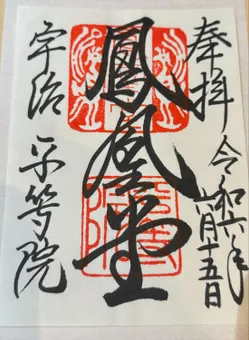 奉拝 令和六年
月十五日
鳳凰堂
宇治 平等院